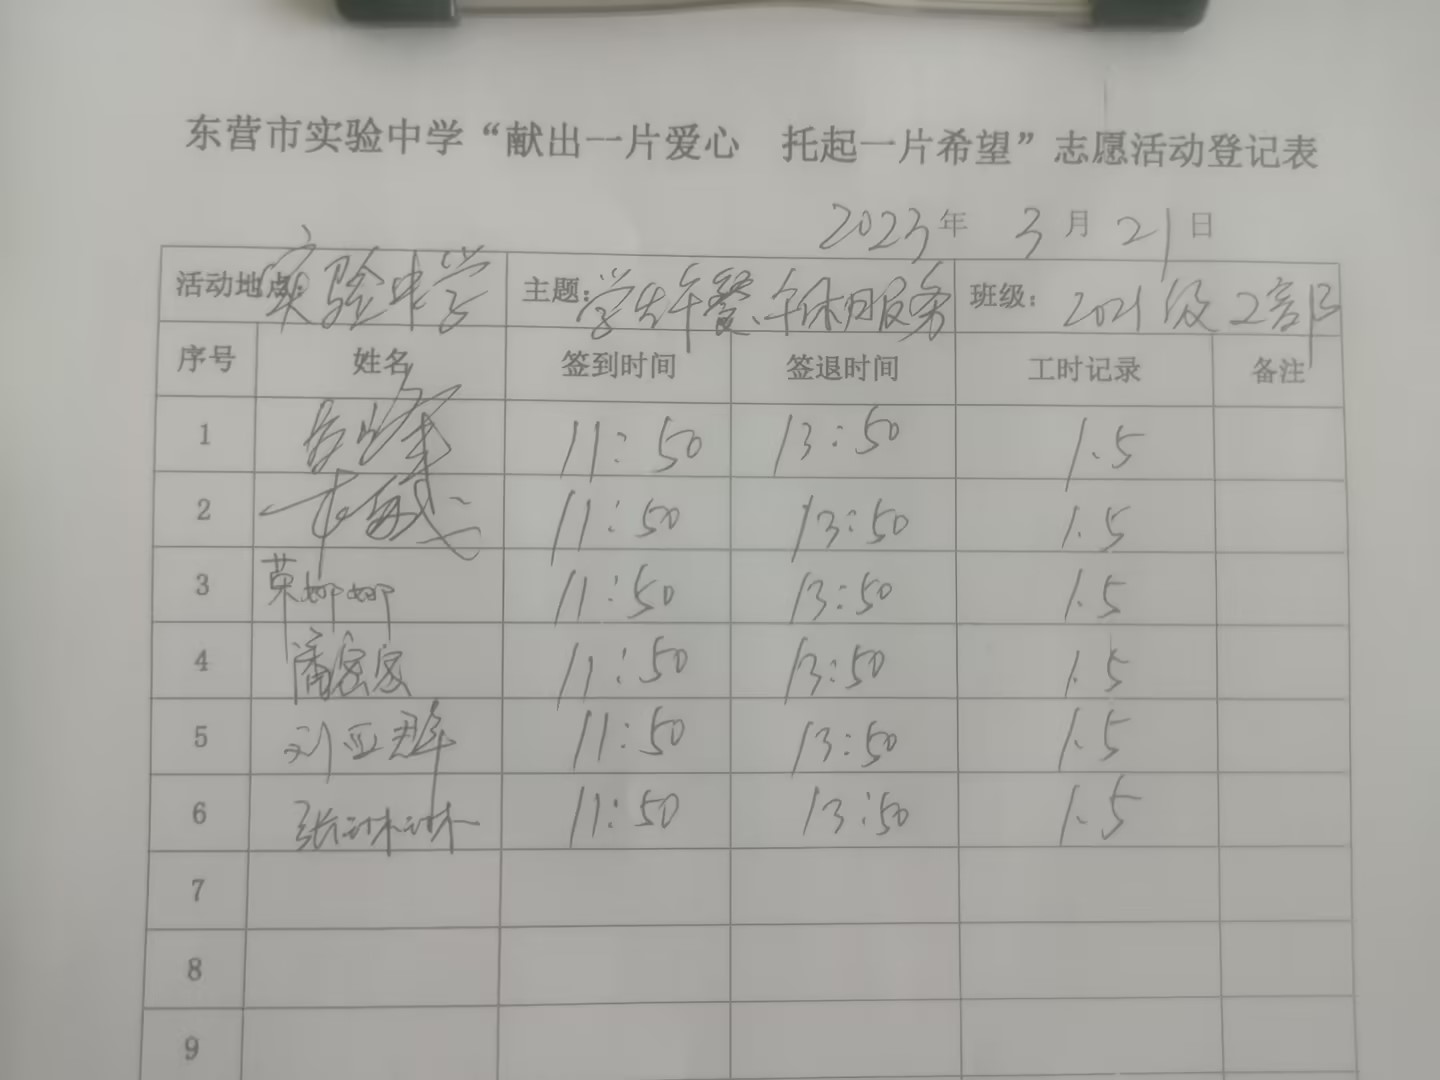 东营市实验中学“献出一片爱心 托起一片希望”志愿活动登记表
2023年 3月 21日
活动地点: 实验中学 主题: 学生午餐、午休服务 班级: 2021级2部
序号 姓名 签到时间 签退时间 工时记录 备注
1 11:50 13:50 1.5
2 11:50 13:50 1.5
3 荣娜娜 11:50 13:50 1.5
4 潘密密 11:50 13:50 1.5
5 刘亚 11:50 13:50 1.5
6 张琳琳 11:50 13:50 1.5
7
8
9